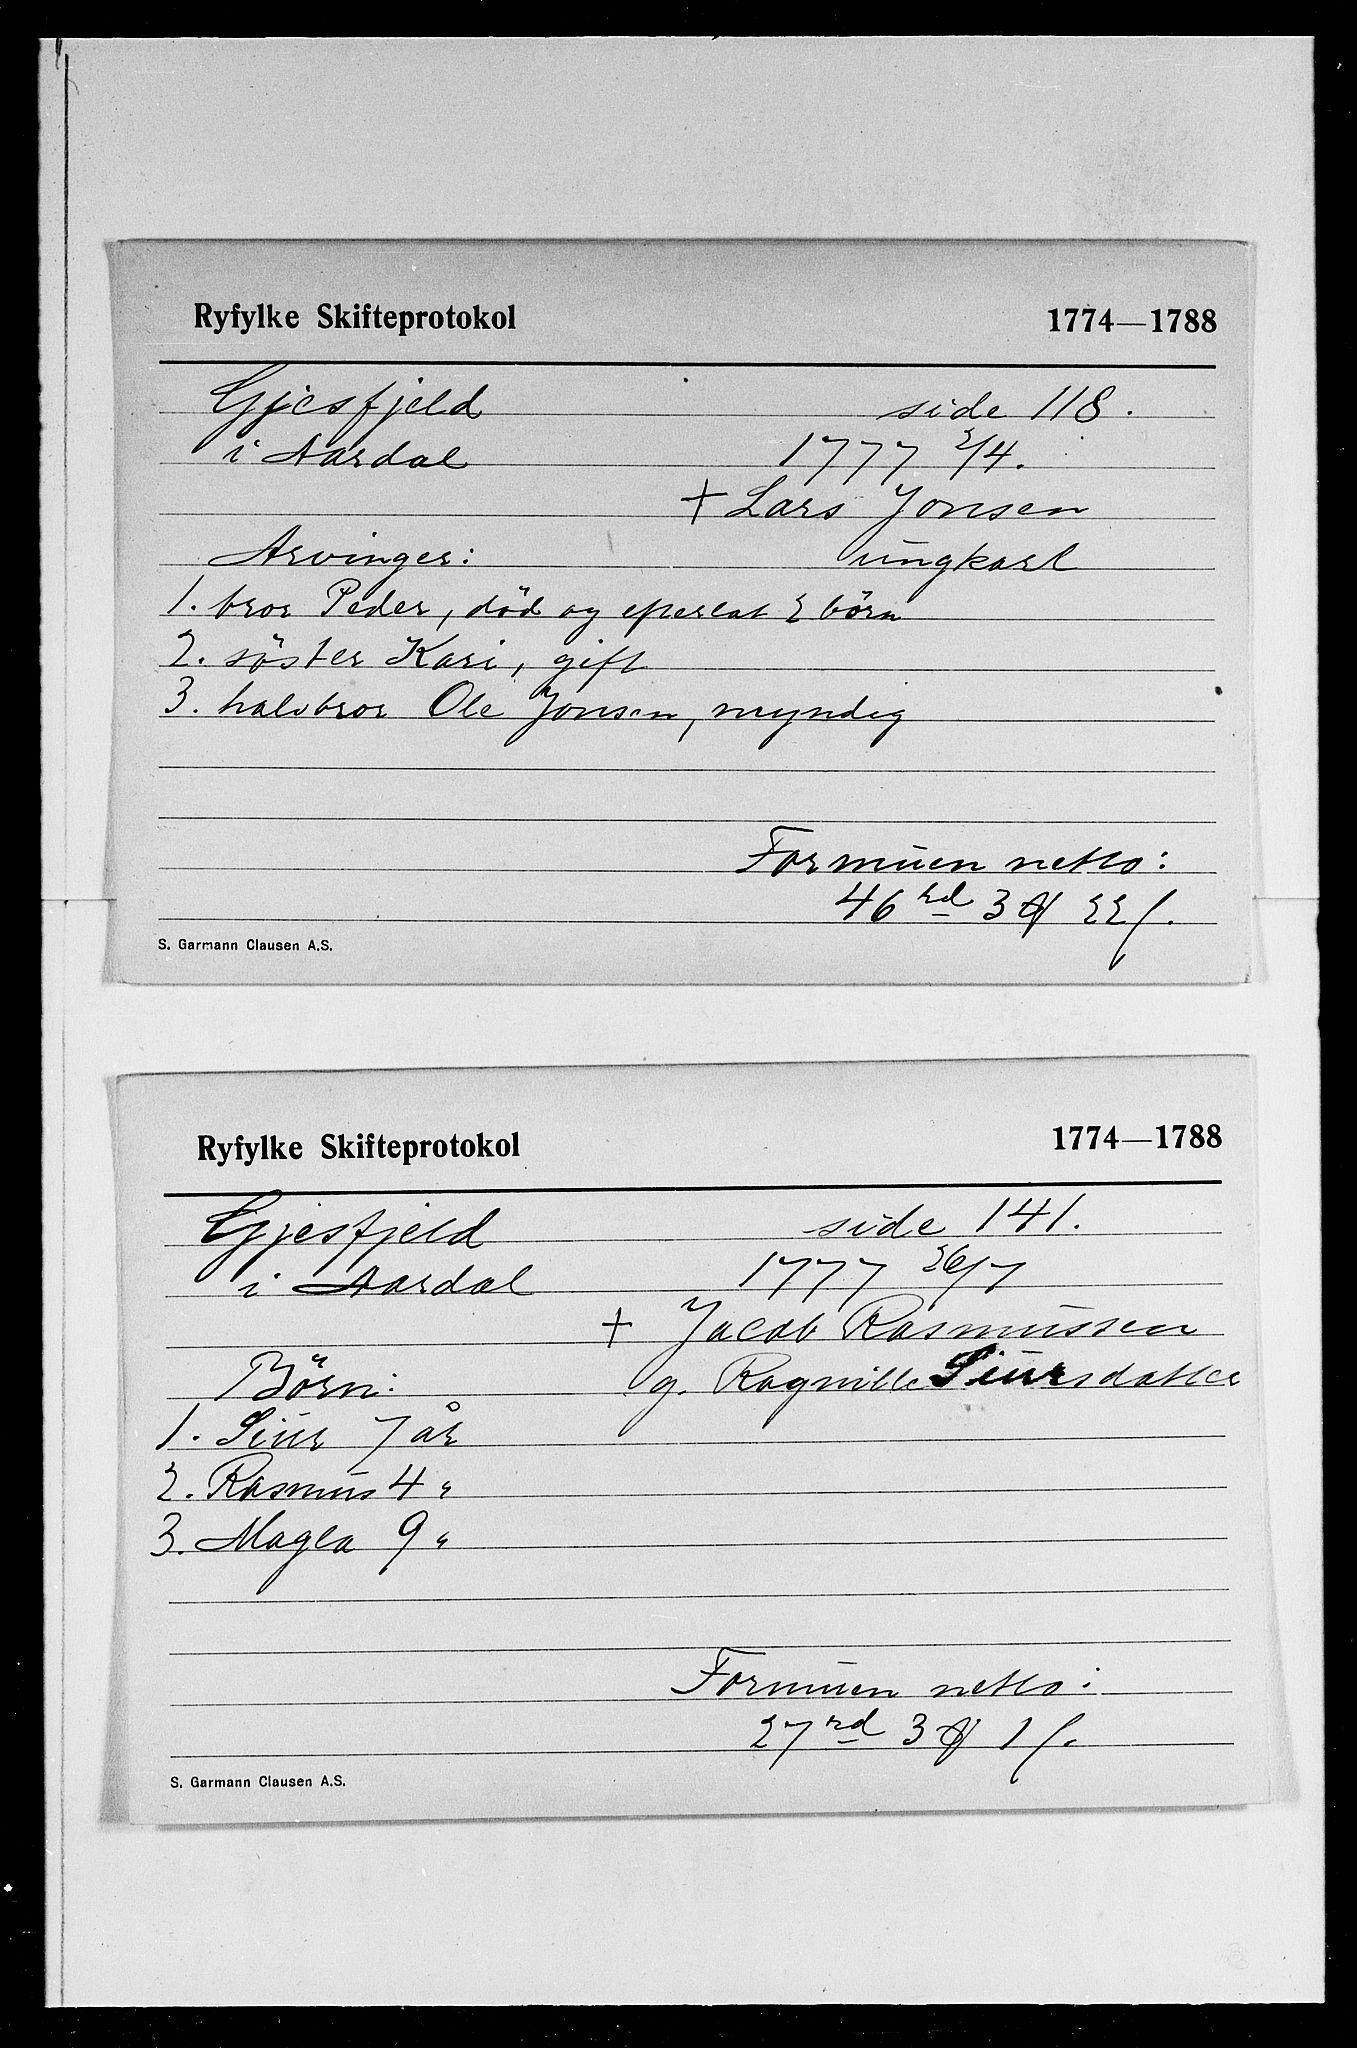 Ryfylke Skifteprotokol 1774—1788
Gjesfjeld side 118.
i Aardal 1777 2/4.
+ Lars Jonsen
Arvinger: ungkarl
1. bror Peder, död og efterlat 2 börn
2. söster Kari, gift
3. halvbror Ole Jonsen, myndig
Formuen netto:
46 rd 3 22 ſ.
S. Garmann Clausen A.S.
Ryfylke Skifteprotokol 1774—1788
Gjesfjeld side 141.
i Aardal 1777 26/7
+ Jacob Rasmussen
Börn: g. Ragnille Siursdatter
1. Siur 7 år
2. Rasmus 4 "
3. Magla 9 "
Formuen netto:
27 rd 3 1 ſ.
S. Garmann Clausen A.S.